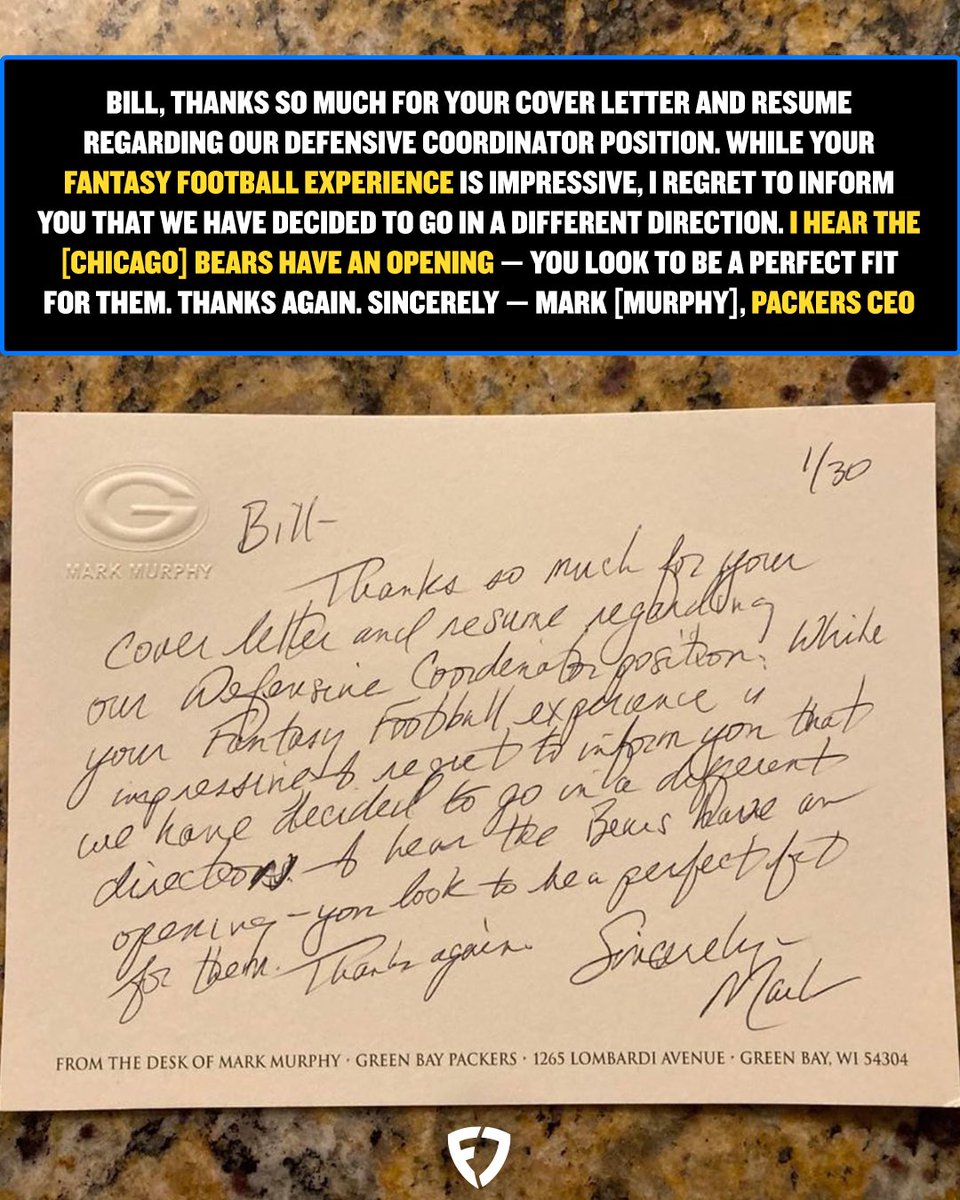 BILL, THANKS SO MUCH FOR YOUR COVER LETTER AND RESUME
REGARDING OUR DEFENSIVE COORDINATOR POSITION. WHILE YOUR
FANTASY FOOTBALL EXPERIENCE IS IMPRESSIVE, I REGRET TO INFORM
YOU THAT WE HAVE DECIDED TO GO IN A DIFFERENT DIRECTION. I HEAR THE
[CHICAGO] BEARS HAVE AN OPENING – YOU LOOK TO BE A PERFECT FIT
FOR THEM. THANKS AGAIN. SINCERELY – MARK [MURPHY], PACKERS CEO
1/30
G
MARK MURPHY
Bill-
Thanks so much for your
cover letter and resume regarding
our Defensive Coordinator position. While
your Fantasy Football experience is
impressive I regret to inform you that
we have decided to go in a different
direction. I hear the Bears have an
opening - you look to be a perfect fit
for them. Thanks again. Sincerely-
Mark
FROM THE DESK OF MARK MURPHY · GREEN BAY PACKERS · 1265 LOMBARDI AVENUE · GREEN BAY, WI 54304